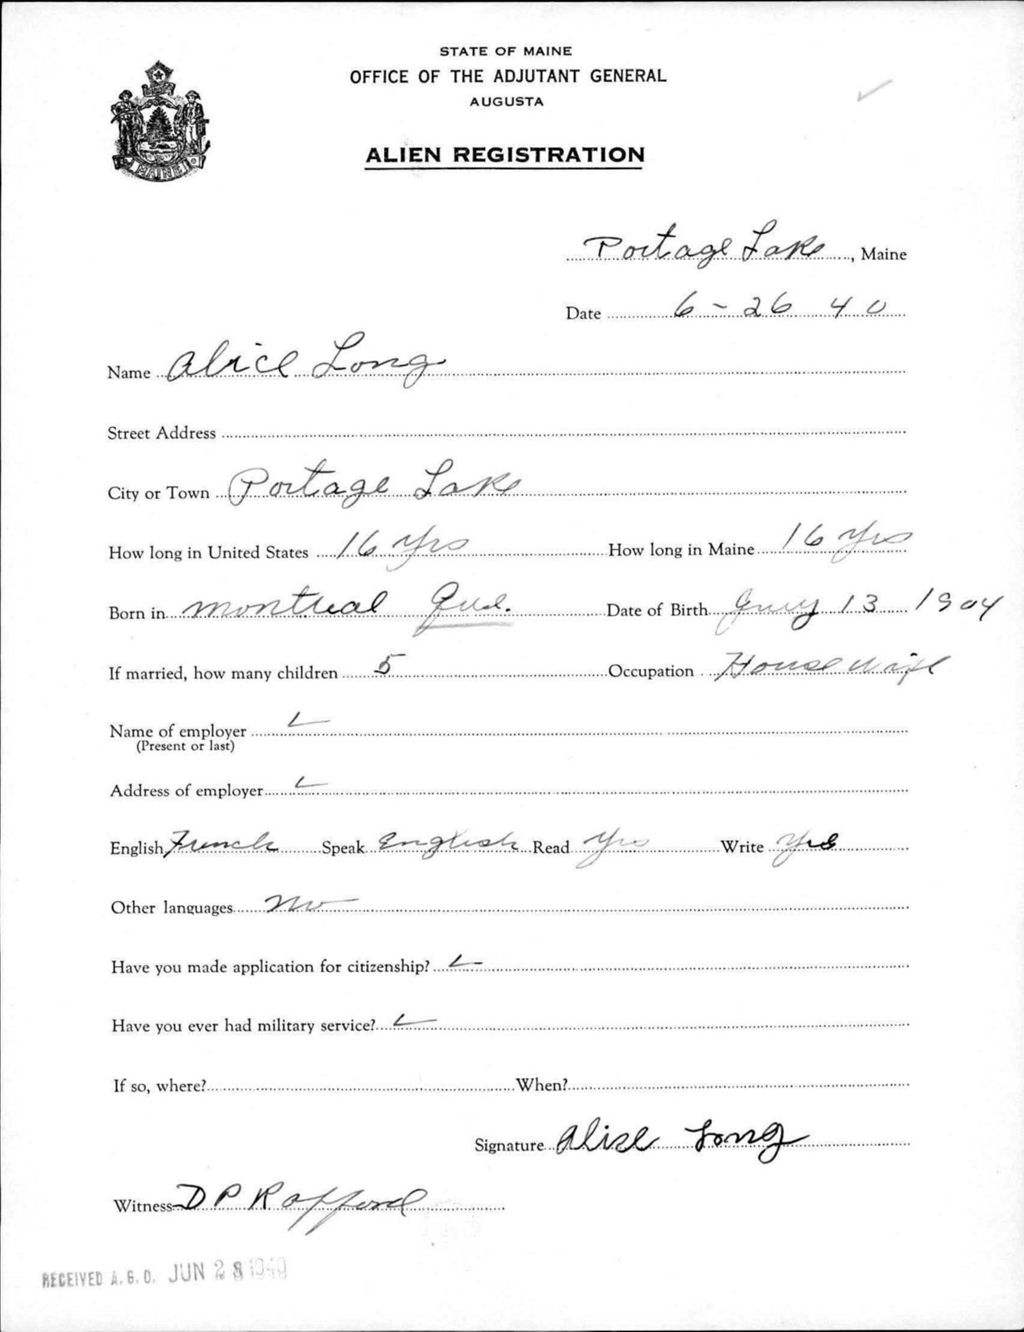 STATE OF MAINE
OFFICE OF THE ADJUTANT GENERAL
AUGUSTA
ALIEN REGISTRATION
Portage Lake, Maine
Date 6-26 40
Name Alice Long
Street Address
City or Town Portage Lake
How long in United States 16 Yrs How long in Maine 16 Yrs
Born in Montreal Que. Date of Birth 13 1904
If married, how many children 5 Occupation House wife
Name of employer
(Present or last)
Address of employer
English French Speak English Read Yes Write Yes
Other languages No
Have you made application for citizenship?
Have you ever had military service?
If so, where? When?
Signature Alice Long
Witness D P Rafford
RECEIVED A.G.O. JUN 28 1940
MAINE